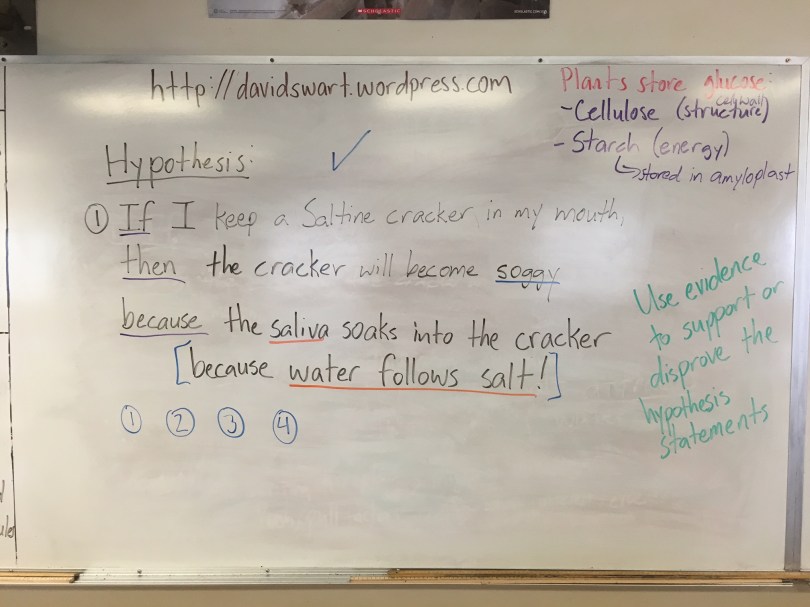 SCHOLASTIC
http://davidswart.wordpress.com
Plants store glucose:
cell wall
- Cellulose (structure)
- Starch (energy)
↳ stored in amyloplast
Hypothesis: ✓
① If I keep a Saltine cracker in my mouth,
then the cracker will become soggy
because the saliva soaks into the cracker
[because water follows salt!]
① ② ③ ④
Use evidence
to support or
disprove the
hypothesis
statements